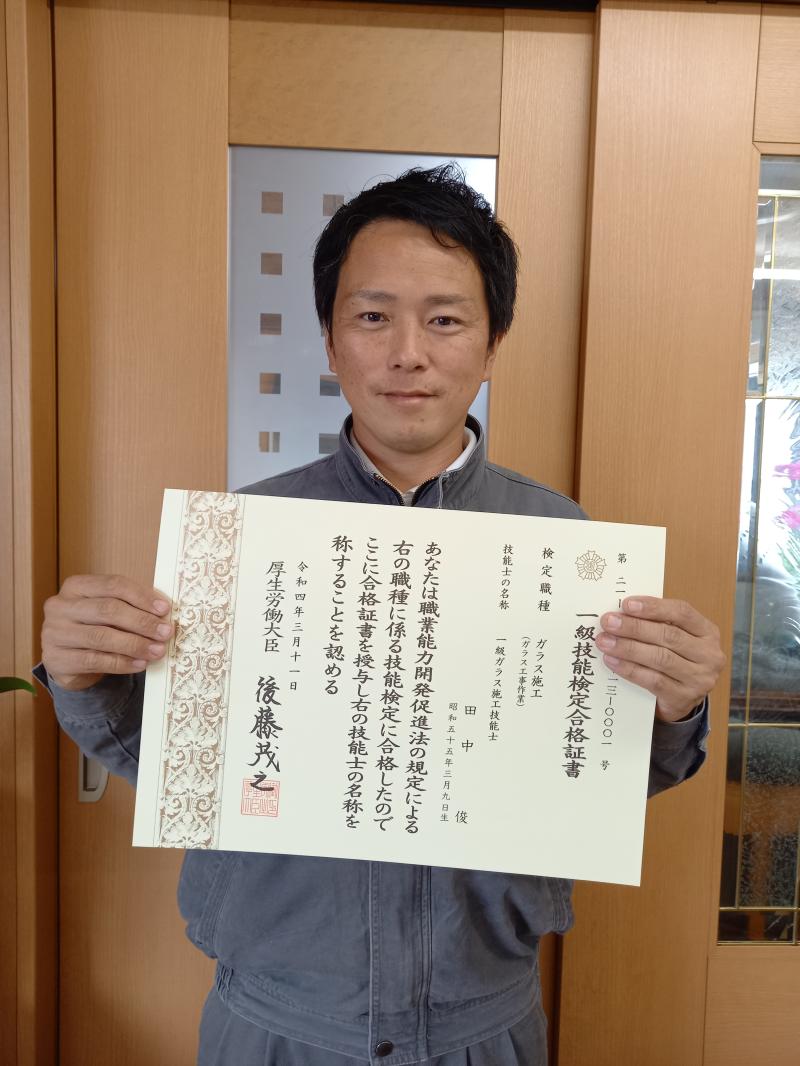 第二一
一三一〇〇〇一号
一級技能検定合格証書
検定職種 ガラス施工
(ガラス工事作業)
技能士の名称 一級ガラス施工技能士
田中 俊
昭和五十五年三月九日生
あなたは職業能力開発促進法の規定による
右の職種に係る技能検定に合格したので
ここに合格証書を授与し右の技能士の名称を
称することを認める
令和四年三月十一日
厚生労働大臣 後藤茂之